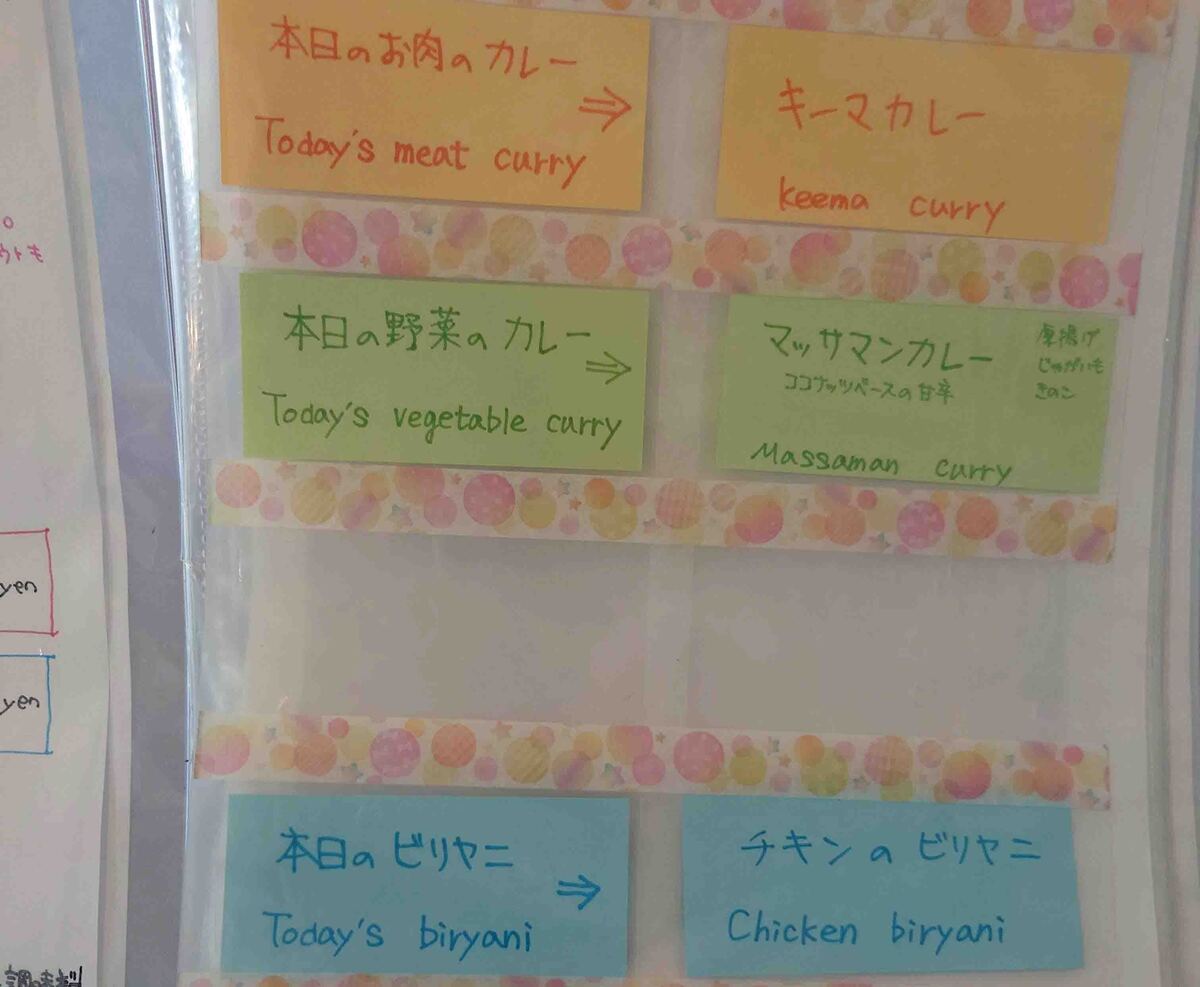 本日のお肉のカレー
⇒
Today's meat curry
キーマカレー
keema curry
本日の野菜のカレー
⇒
Today's vegetable curry
マッサマンカレー
ココナッツベースの甘辛
厚揚げ
じゃがいも
きのこ
Massaman curry
本日のビリヤニ
⇒
Today's biryani
チキンのビリヤニ
Chicken biryani
yen
yen
調味料